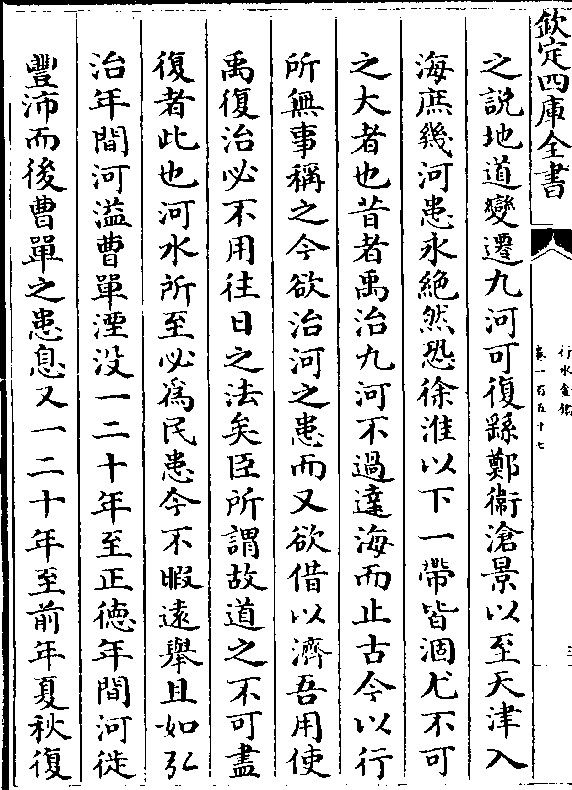 欽定四庫全書
行水金鑑
卷一百五十七
三
之說地道變遷九河可復繇鄭衛滄景以至天津入
海庶幾河患永絶然恐徐淮以下一帶皆涸尤不可
之大者也昔者禹治九河不過達海而止古今以行
所無事稱之今欲治河之患而又欲借以濟吾用使
禹復治必不用往日之法矣臣所謂故道之不可盡
復者此也河水所至必為民患今不暇逺舉且如弘
治年間河溢曹單湮沒一二十年至正徳年間河徙
豐沛而後曹單之患息又一二十年至前年夏秋復